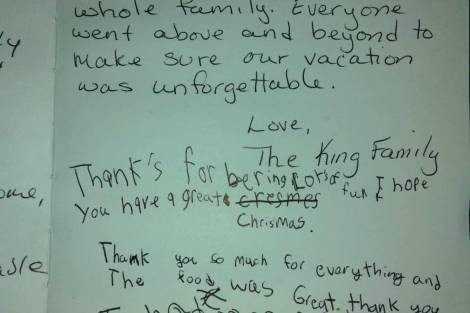 whole family. Everyone
went above and beyond to
make sure our vacation
was unforgettable.
Love,
The King Family
Thank's for bering Lots of fun I hope
you have a great cresmes
Chrismas.
Thank you so much for everything and
The food was Great. thank you